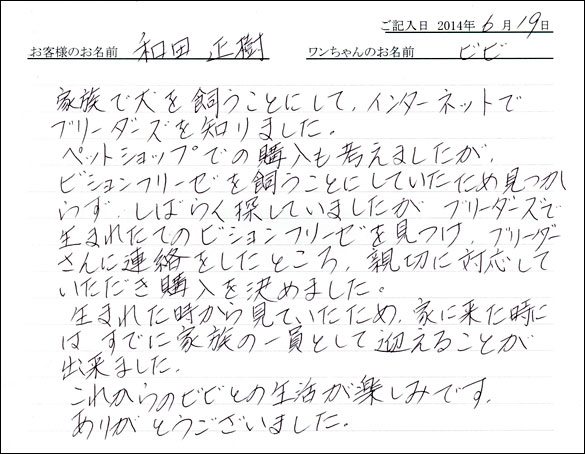 ご記入日 2014年6月19日
お客様のお名前 和田 正樹 ワンちゃんのお名前 ビビ
家族で犬を飼うことにして、インターネットで
ブリーダーズを知りました。
ペットショップでの購入も考えましたが、
ビションフリーゼを飼うことにしていたため見つか
らず、しばらく探していましたが ブリーダーズで
生まれたてのビションフリーゼを見つけ、ブリーダー
さんに連絡をしたところ、親切に対応して
いただき購入を決めました。
生まれた時から見ていたため、家に来た時に
は すでに家族の一員として迎えることが
出来ました。
これからのビビとの生活が楽しみです。
ありがとうございました。